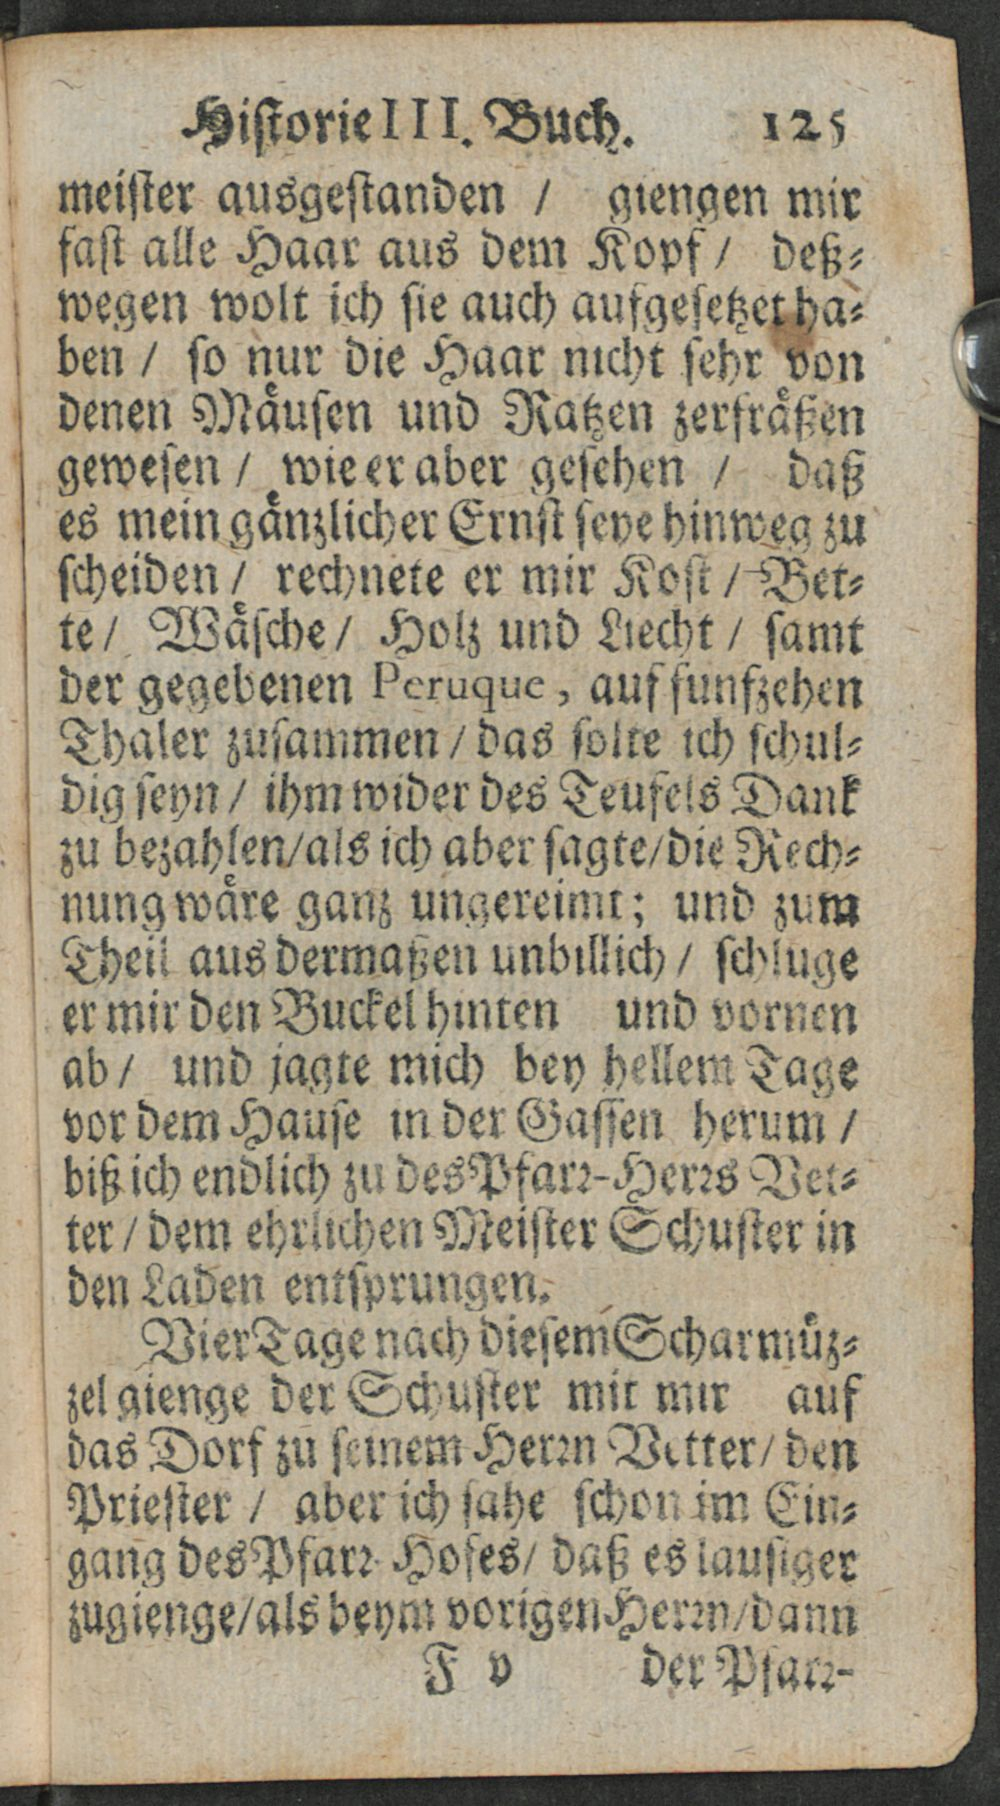 Hiſtorie III. Buch. 125
meiſter ausgeſtanden / giengen mir
faſt alle Haar aus dem Kopf / deß⸗
wegen wolt ich ſie auch aufgeſetzet ha⸗
ben / ſo nur die Haar nicht ſehr von
denen Mäuſen und Ratzen zerfräßen
geweſen / wie er aber geſehen / daß
es mein gänzlicher Ernſt ſeye hinweg zu
ſcheiden / rechnete er mir Koſt / Bet⸗
te / Wäſche / Holz und Liecht / ſamt
der gegebenen Peruque, auf funfzehen
Thaler zuſammen / das ſolte ich ſchul⸗
dig ſeyn / ihm wider des Teufels Dank
zu bezahlen/als ich aber ſagte/die Rech⸗
nung wäre ganz ungereimt; und zum
Theil aus dermaßen unbillich / ſchluge
er mir den Buckel hinten und vornen
ab / und jagte mich bey hellem Tage
vor dem Hauſe in der Gaſſen herum /
biß ich endlich zu des Pfarꝛ-Herꝛs Vet⸗
ter / dem ehrlichen Meiſter Schuſter in
den Laden entſprungen.
Vier Tage nach dieſem Scharmüz⸗
zel gienge der Schuſter mit mir auf
das Dorf zu ſeinem Herꝛn Vetter/ den
Prieſter / aber ich ſahe ſchon im Ein⸗
gang des Pfarꝛ-Hofes/ daß es lauſiger
zugienge/als beym vorigen Herꝛn/dann
F v der Pfarꝛ-